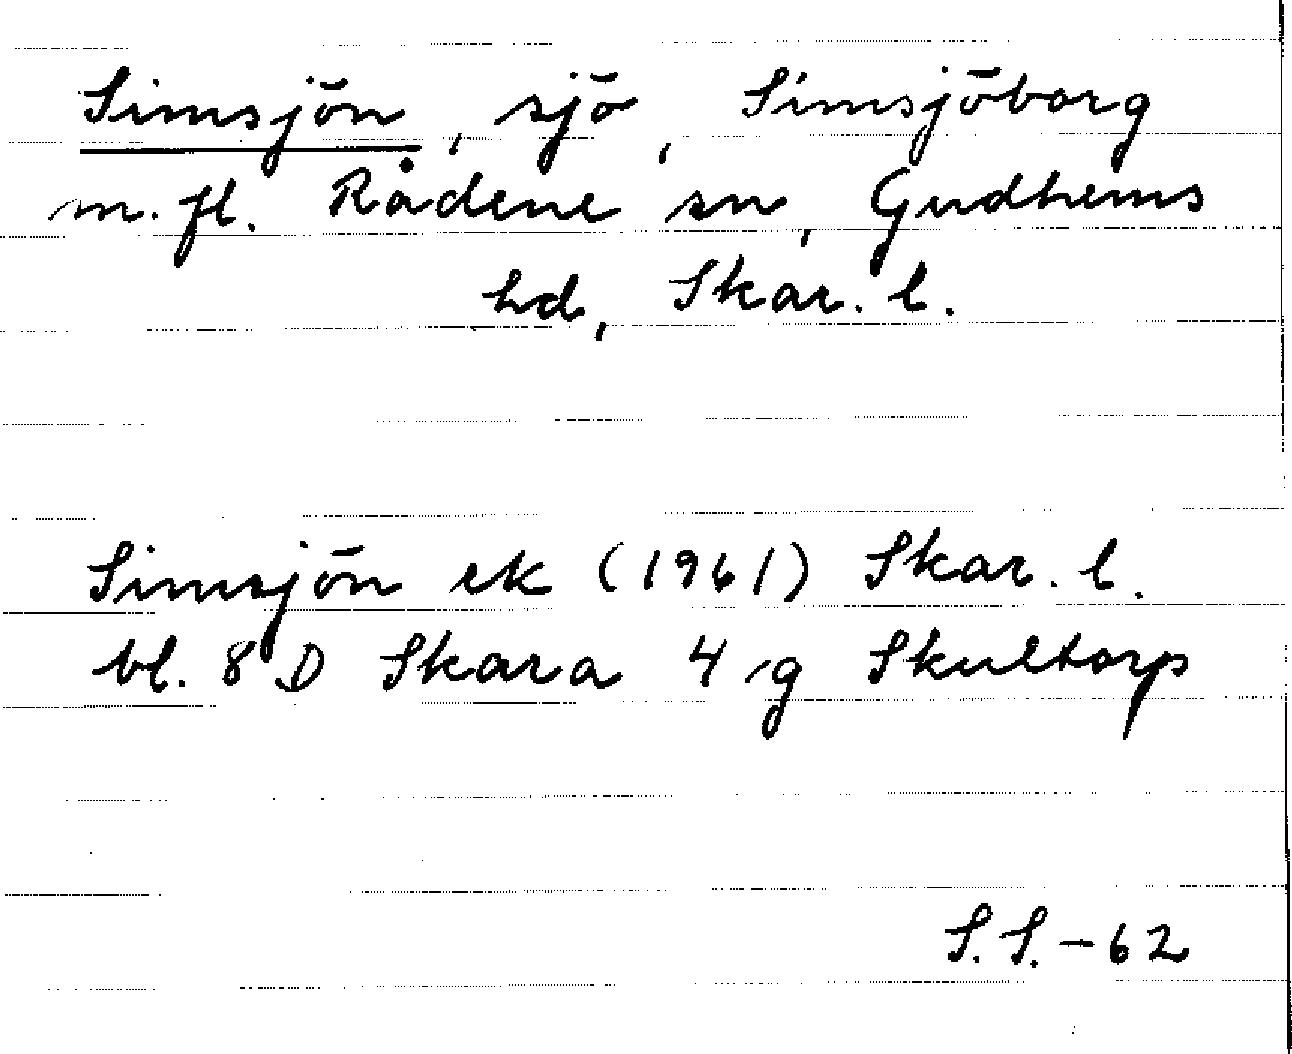 Simsjön, sjö, Simsjöborg
m.fl. Rådene sn, Gudhems
hd, Skar. l.
Simsjön ek (1961) Skar. l.
bl. 8 D Skara 4 g Skultorp
S.S. - 62